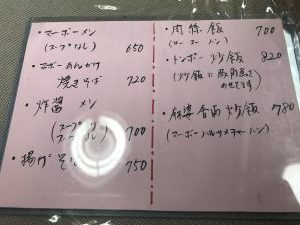 ・マーボーメン
(スープなし) 650
・マーボーあんかけ
焼きそば 720
・炸醤 メン
(スープ
なし) 700
・揚げそば 750
・肉絲飯 700
(ロースードン)
・トンポー炒飯 820
(炒飯に豚角煮を
のせてます)
・麻婆春雨炒飯 780
(マーボーハルサメチャーハン)